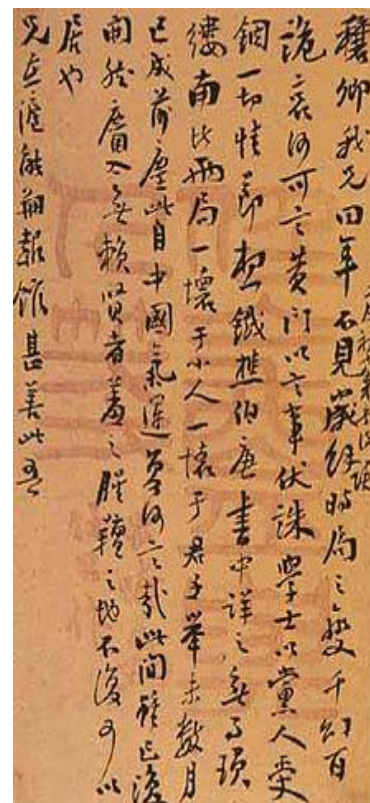 穰卿我兄四年不見歲經時局之變千幻百
詭哀何可言黃門以言事伏誅學士以黨人受
錮一切情節想鐵樵伯唐書中詳之無可瑣
縷南北兩局一壞于小人一壞于君子舉未數月
已成前塵此自中國氣運夫何言哉此間雖已復
開然麕入無賴賢者羞之腥羶之地不復可以
居也
兄在滬能創報館甚善此吾